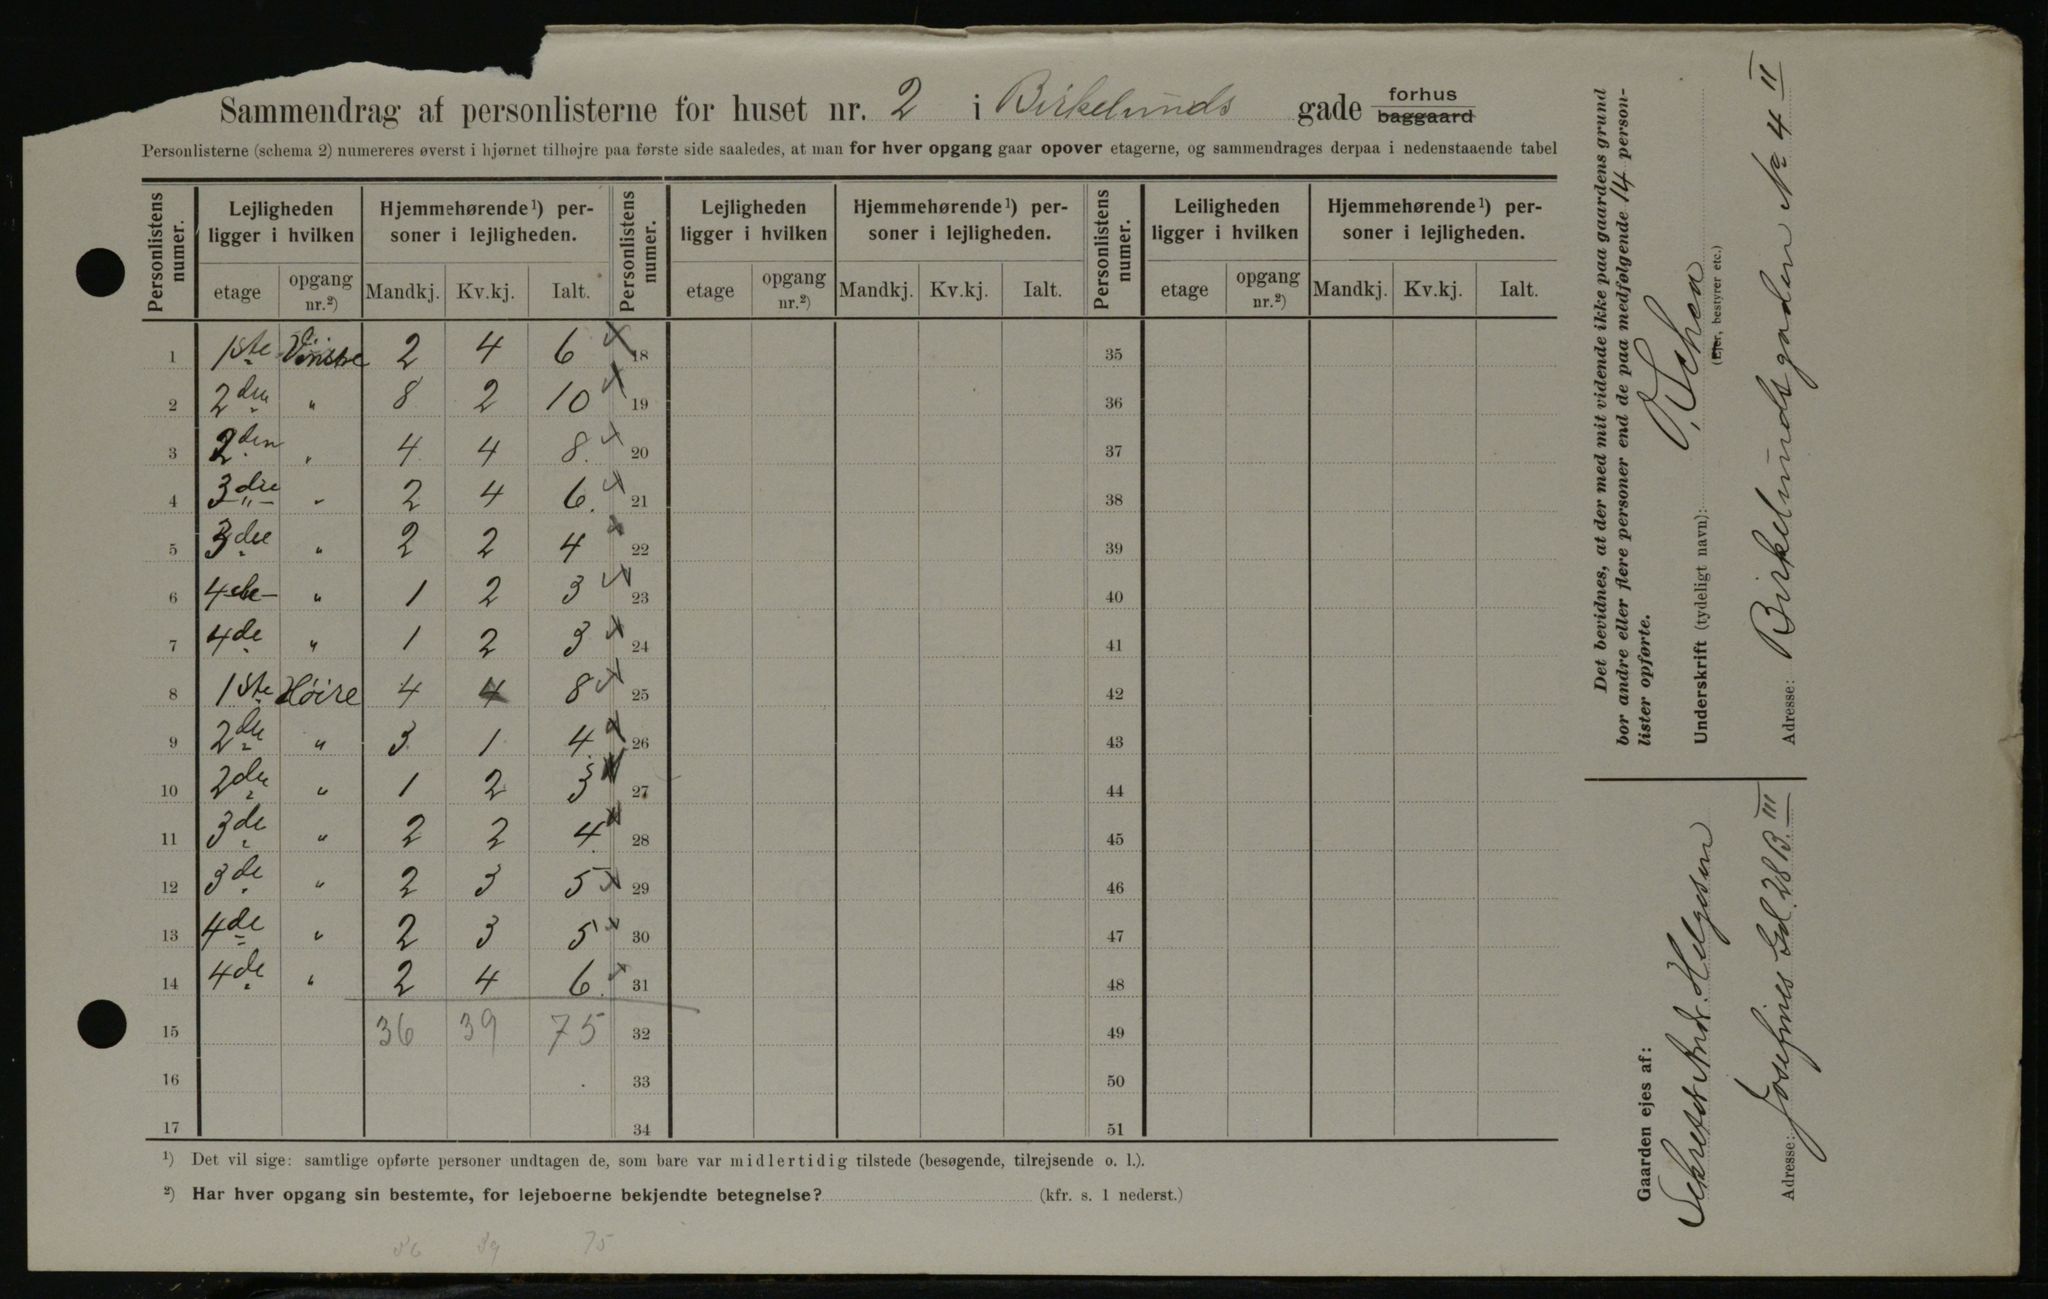 Sammendrag af personlisterne for huset nr. 2 i Birkelunds gade forhus baggaard
Personlisterne (schema 2) numereres øverst i hjørnet tilhøjre paa første side saaledes, at man for hver opgang gaar opover etagerne, og sammendrages derpaa i nedenstaaende tabel
Personlistens numer. Lejligheden ligger i hvilken Hjemmehørende ¹) personer i lejligheden. Personlistens numer. Lejligheden ligger i hvilken Hjemmehørende ¹) personer i lejligheden. Personlistens numer. Leiligheden ligger i hvilken Hjemmehørende ¹) personer i lejligheden.
etage opgang nr.²) Mandkj. Kv.kj. Ialt. etage opgang nr.²) Mandkj. Kv.kj. Ialt. etage opgang nr.²) Mandkj. Kv.kj. Ialt.
1 1ste Venstre 2 4 6 18 35
2 2den " 8 2 10 19 36
3 2den " 4 4 8 20 37
4 3die " 2 4 6 21 38
5 3die " 2 2 4 22 39
6 4de " 1 2 3 23 40
7 4de " 1 2 3 24 41
8 1ste Höire 4 4 8 25 42
9 2de " 3 1 4 26 43
10 2de " 1 2 3 27 44
11 3de " 2 2 4 28 45
12 3de " 2 3 5 29 46
13 4de " 2 3 5 30 47
14 4de " 2 4 6 31 48
15 36 39 75 32 49
16 33 50
17 34 51
¹) Det vil sige: samtlige opførte personer undtagen de, som bare var midlertidig tilstede (besøgende, tilrejsende o. l.).
²) Har hver opgang sin bestemte, for lejeboerne bekjendte betegnelse? (kfr. s. 1 nederst.)
36 39 75
Det bevidnes, at der med mit vidende ikke paa gaardens grund
bor andre eller flere personer end de paa medfølgende 14 person-
lister opførte.
Underskrift (tydeligt navn):
(Ejer, bestyrer etc.)
Adresse: Birkelundsgaden No 4 II
Gaarden ejes af:
Sekretær Andr. Helgesen
Adresse: Josefines Gd. 28 B. III